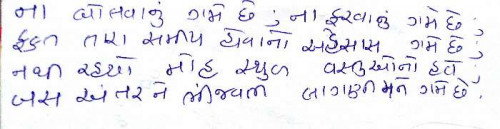 ના બોલવાનું ગમે છે ; ના ફરવાનું ગમે છે ;
ફક્ત તારા સમીપ હોવાનો અહેસાસ ગમે છે ;
નથી રહ્યો મોહ સ્થુળ વસ્તુઓનો હવે ;
બસ અંતરને ભીંજવતી લાગણી મને ગમે છે .